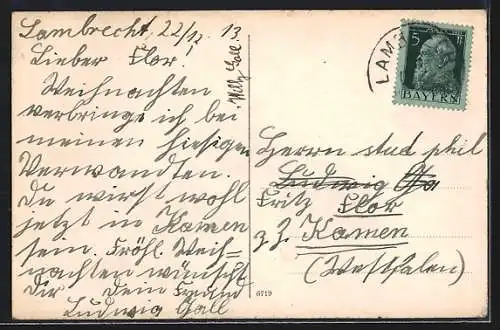 Lambrecht, 22/12 13.
Lieber Flor!
Weihnachten
verbringe ich bei
meinen hiesigen
Verwandten.
Du wirst wohl
jetzt in Kamen
sein. Fröhl. Weih=
nachten wünscht
Dir Dein Freund
Ludwig Gall
Willy Gall
5
BAYERN
LAMB
Herrn stud phil
Ludwig
Fritz Flor
z. Z. Kamen
(Westfalen)
6719